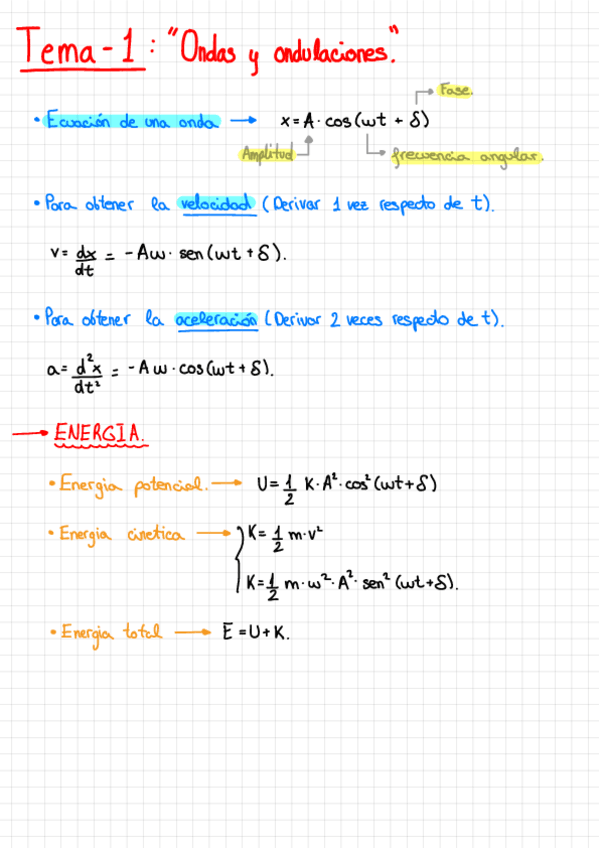 Tema-1: "Ondas y ondulaciones."
Fase.
• Ecuación de una onda → x = A · cos(ωt + δ)
Amplitud
frecuencia angular.
• Para obtener la velocidad (Derivar 1 vez respecto de t).
v = dx/dt = -Aω · sen(ωt + δ).
• Para obtener la aceleración (Derivar 2 veces respecto de t).
a = d²x/dt² = -Aω · cos(ωt + δ).
→ ENERGIA.
• Energia potencial. → U = 1/2 K · A² · cos²(ωt + δ)
• Energia cinetica → K = 1/2 m · v²
K = 1/2 m · ω² · A² · sen²(ωt + δ).
• Energia total → E = U + K.